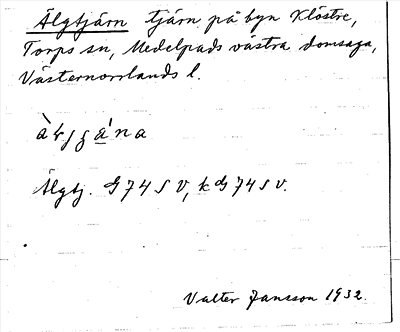 Älgtjärn tjärn på byn Klöstre,
Torps sn, Medelpads västra domsaga,
Västernorrlands l.
Älgtj. G 74 S V, k G 74 S V.
Valter Jansson 1932.